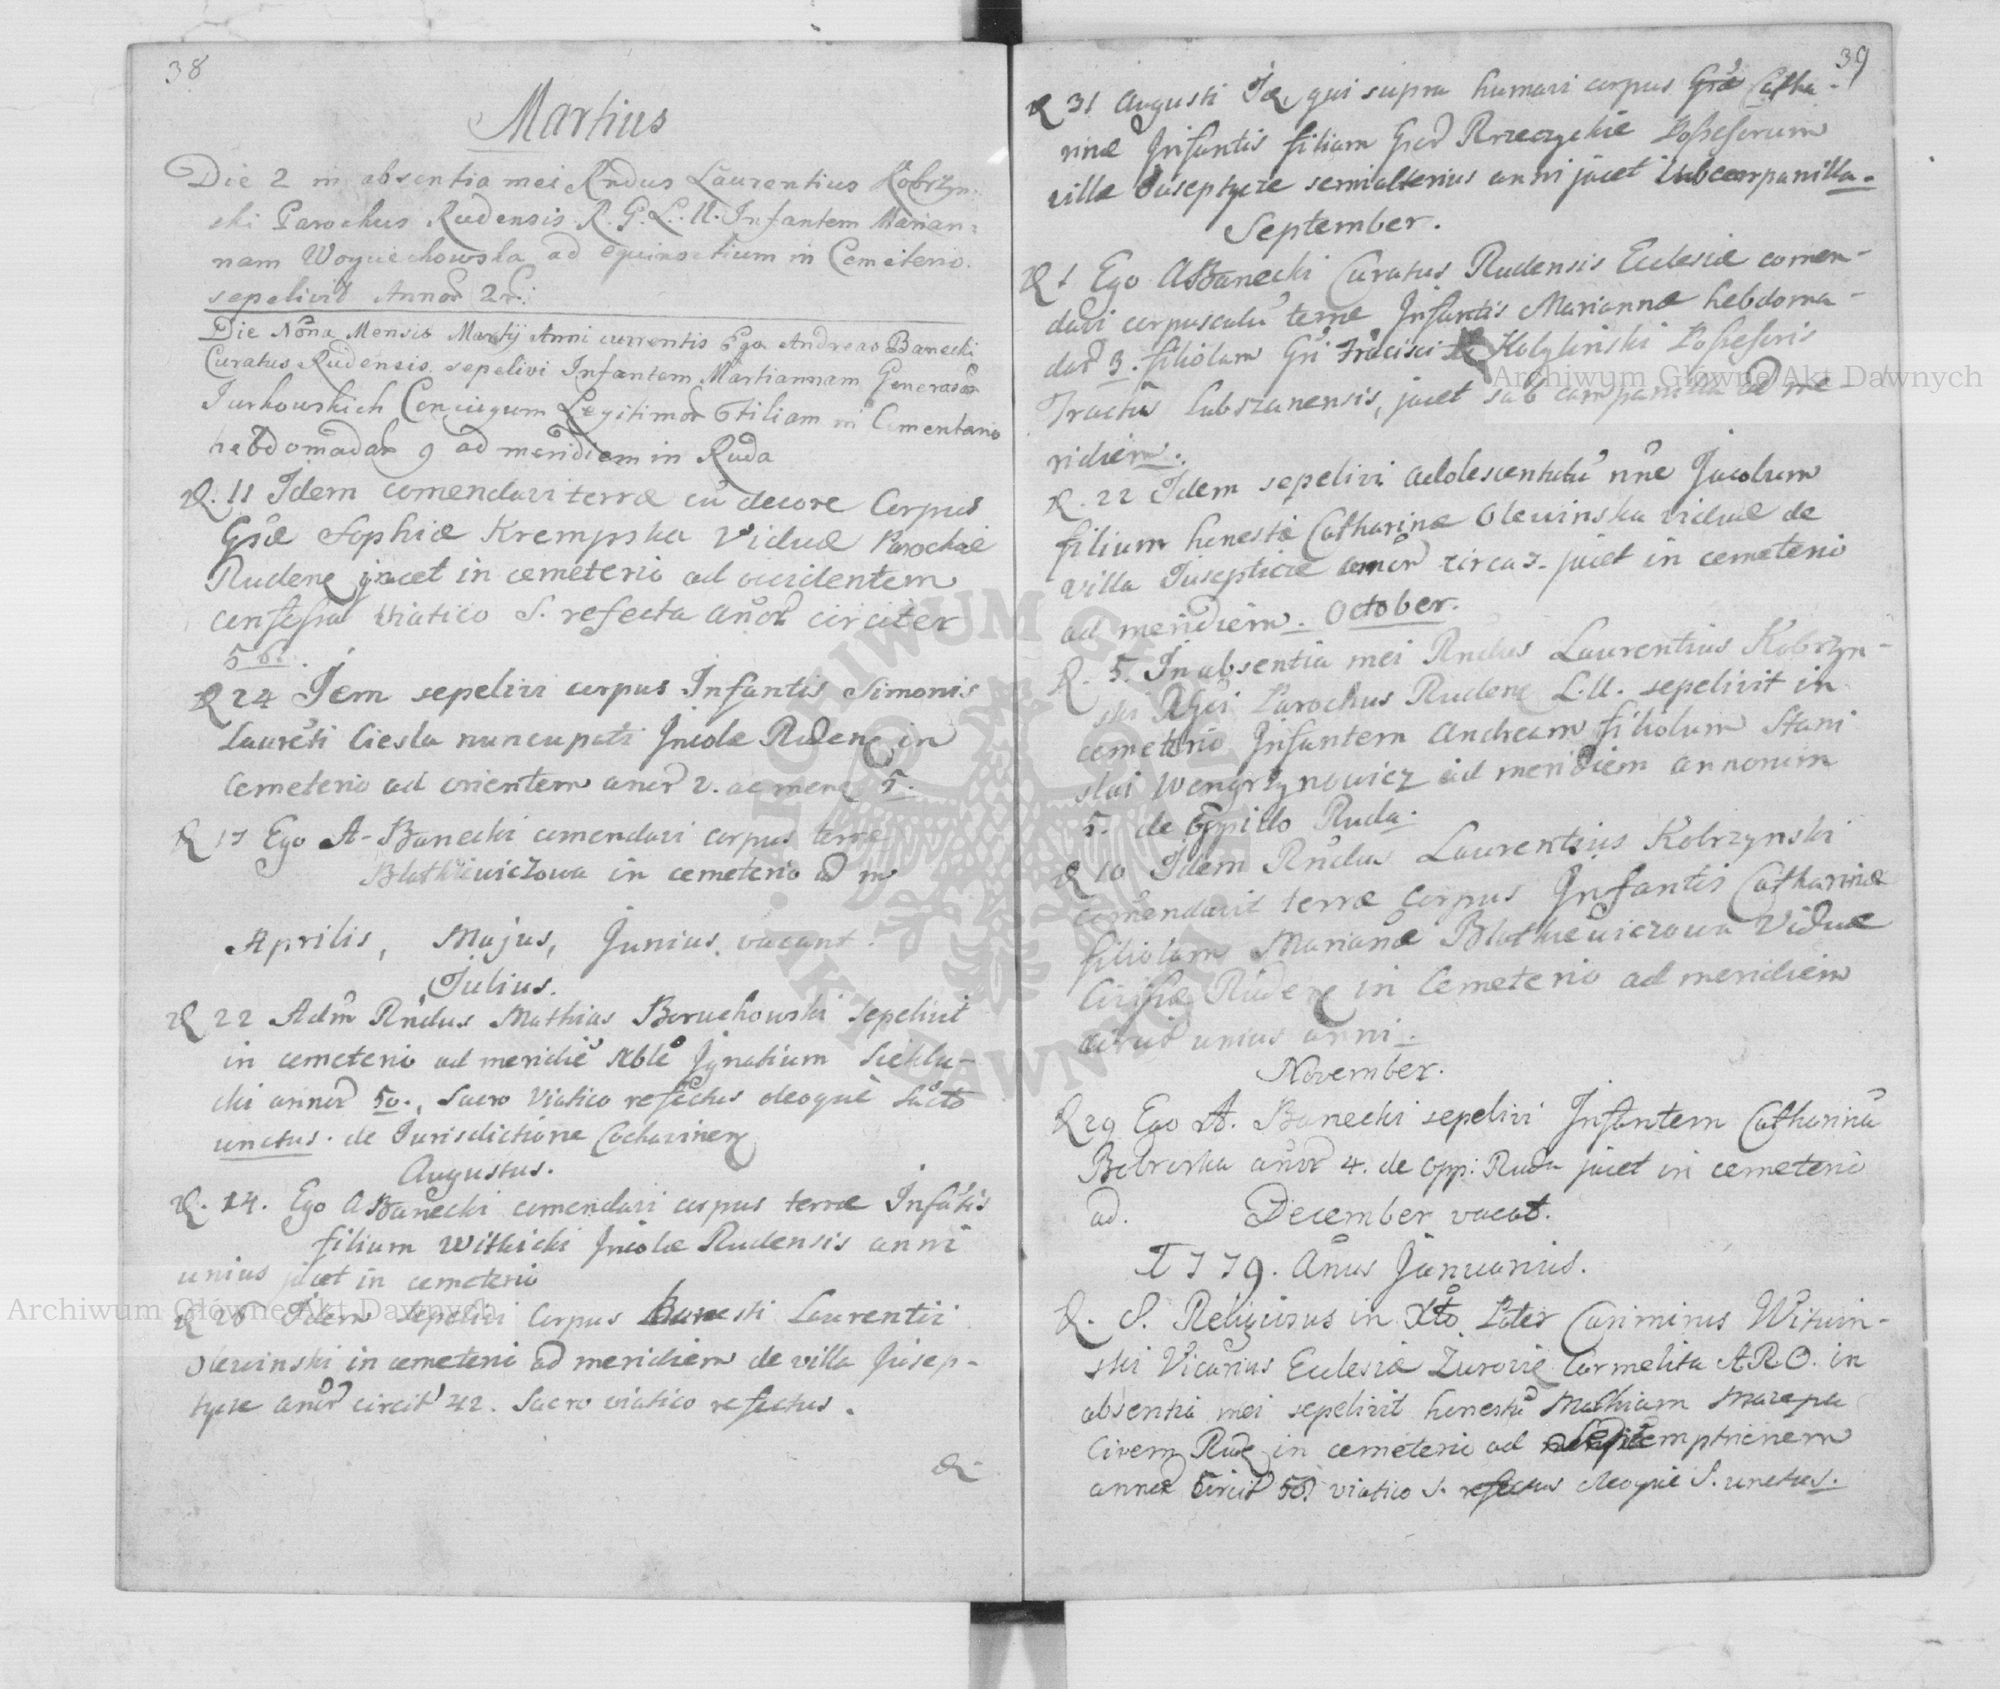 38
Martius
Die 2 in absentia mei Rndus Laurentius Kobrzyn:
ski Parochus Rudensis R. G. L. U. Infantem Marian:
nam Woyciechowska ad equinoctium in Cemeterio
sepelivit Annor 2r:
Die Nona Mensis Martij Anni currentis Ego Andreas Banecki
Curatus Rudensis sepelivi Infantem Martiannam Generosor
Jurkowskich Conjugum Legitimor Filiam in Cementario
hebdomadar 9 ad meridiem in Ruda
D. 11 Idem comendavi terræ cū decore Corpus
Gsæ Sophiæ Krempska Viduæ Parochiæ
Rudens jacet in cemeterio ad occidentem
confessa viatico S. refecta anor circiter
56.
D 24 Iem sepelivi corpus Infantis Simonis
Laureti Ciesla nuncupati Incolæ Rudens in
Cemeterio ad orientem anor 2. ac mens 5.
D 17 Ego A. Banecki comendavi corpus terræ
Blatkiewiczowa in cemeterio ad m
Aprilis, Majus, Junius vacant.
Julius.
D 22 Adm Rndus Mathias Boruchowski sepelivit
in cemeterio ad meridiē Nble Ignatium Sieklu-
cki annor 50., Sacro Viatico refectus oleoque Scto
unctus. de Jurisdictione Cochavinens
Augustus.
D. 14. Ego A Banecki comendavi corpus terræ Infatis
filium Withicki Incolæ Rudensis anni
unius jacet in cemeterio
D 28 Idem sepelivi Corpus honesti Laurentii
Olewinski in cemeterio ad meridiem de villa Jusep-
tycze anor circit 42. Sacro viatico refectus.
&
39
D 31 Augusti Id, qui supra humavi corpus Gsæ Catha-
rinæ Infantis filiam Gsor Rzeczyckie Possesorum
villæ Juseptycze semialterius anni jacet sub campanilla.
September.
D 1 Ego A Banecki Curatus Rudensis Eclesiæ comen-
davi corpusculū terræ Infantis Mariannæ hebdoma-
dar 3. filiolam Gsi Fracisci Kobylinski Possesoris
Tractus Lubszanensis, jacet sub campanilla ad me-
ridiem.
D. 22 Idem sepelivi adolescentulū nne Jacobum
filium honestæ Catharinæ Olewinska viduæ de
villa Juseptycze annor circa 7. jacet in cemeterio
ad meridiem. October.
D. 5. In absentia mei Rndus Laurentius Kobrzyn-
ski Parochus Rudens L. U. sepelivit in
cemeterio Infantem Andream filiolum Stani
slai Wengrzynowicz ad meridiem annorum
5. de oppido Ruda.
D 10 Idem Rndus Laurentius Kobrzynski
comendavit terræ Corpus Infantis Catharinæ
filiolam Marianæ Blatkiewiczowa Viduæ
Civisæ Rudens in Cemeterio ad meridiem
circit unius anni.
November.
D 29 Ego A. Banecki sepelivi Infantem Catharinā
Bobroska anor 4. de opp: Ruda jacet in cemeterio
ad. December vacat.
1779. Anus Januarius.
D. 8. Religiosus in Xto Pater Casimirus Witwin-
ski Vicarius Eclesiæ Zuroviens Carmelita A R O. in
absentia mei sepelivit honestū Mathiam Mazepa
Civem Rudens in cemeterio ad septemptrionem
annor Circit 50. viatico S. refectus oleoque S. unctus.
Archiwum Główne Akt Dawnych
Archiwum Główne Akt Dawnych
ARCHIWUM GŁÓWNE AKT DAWNYCH